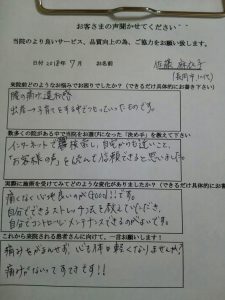 お客さまの声聞かせてください
当院のより良いサービス、品質向上の為、ご協力をお願い致します。
日付 2018年 7月 お名前 佐藤
来院前どのようなお悩みでお困りでしたか？（できるだけ具体的にお書き下さい）
腰の痛み
数多くの院がある中で当院をお選びになった「決め手」を教えて下さい
インターネットで検索し、自宅からも近いこと、
「お客様の声」を読んで信頼できると思いました。
実際に施術を受けてみてどのような変化がありましたか？（できるだけ具体的に）
痛くなく心地良いのがGood!!です。
自分でできるストレッチ法を教えていただき、
自分でコントロール・メンテナンスできるのがよいです。
これから来院される患者さんに向けて、一言お願いします！
痛みをがまんせず、心も体も軽くなりませんか？
痛みがないってすてきです!!